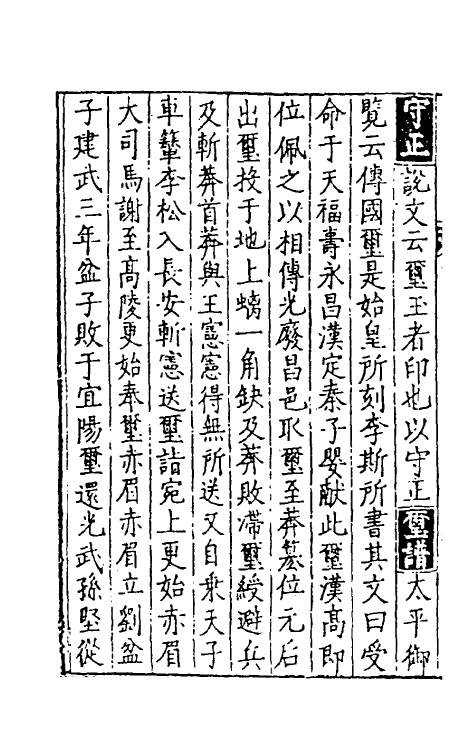 守正說文云璽王者印也以守正璽譜太平御
覽云傳國璽是始皇所刻李斯所書其文曰受
命于天福壽永昌漢定秦子嬰献此璽漢高即
位佩之以相傳光廢昌邑取璽至莽簒位元后
出璽投于地上螭一角缺及莽敗滯璽綬避兵
及斬莽首莽與王憲憲得無所送又自乗天子
車輦李松入長安斬憲送璽詣宛上更始赤眉
大司馬謝至高陵更始奉璽赤眉赤眉立劉盆
子建武三年盆子敗于宜陽璽還光武孫堅從